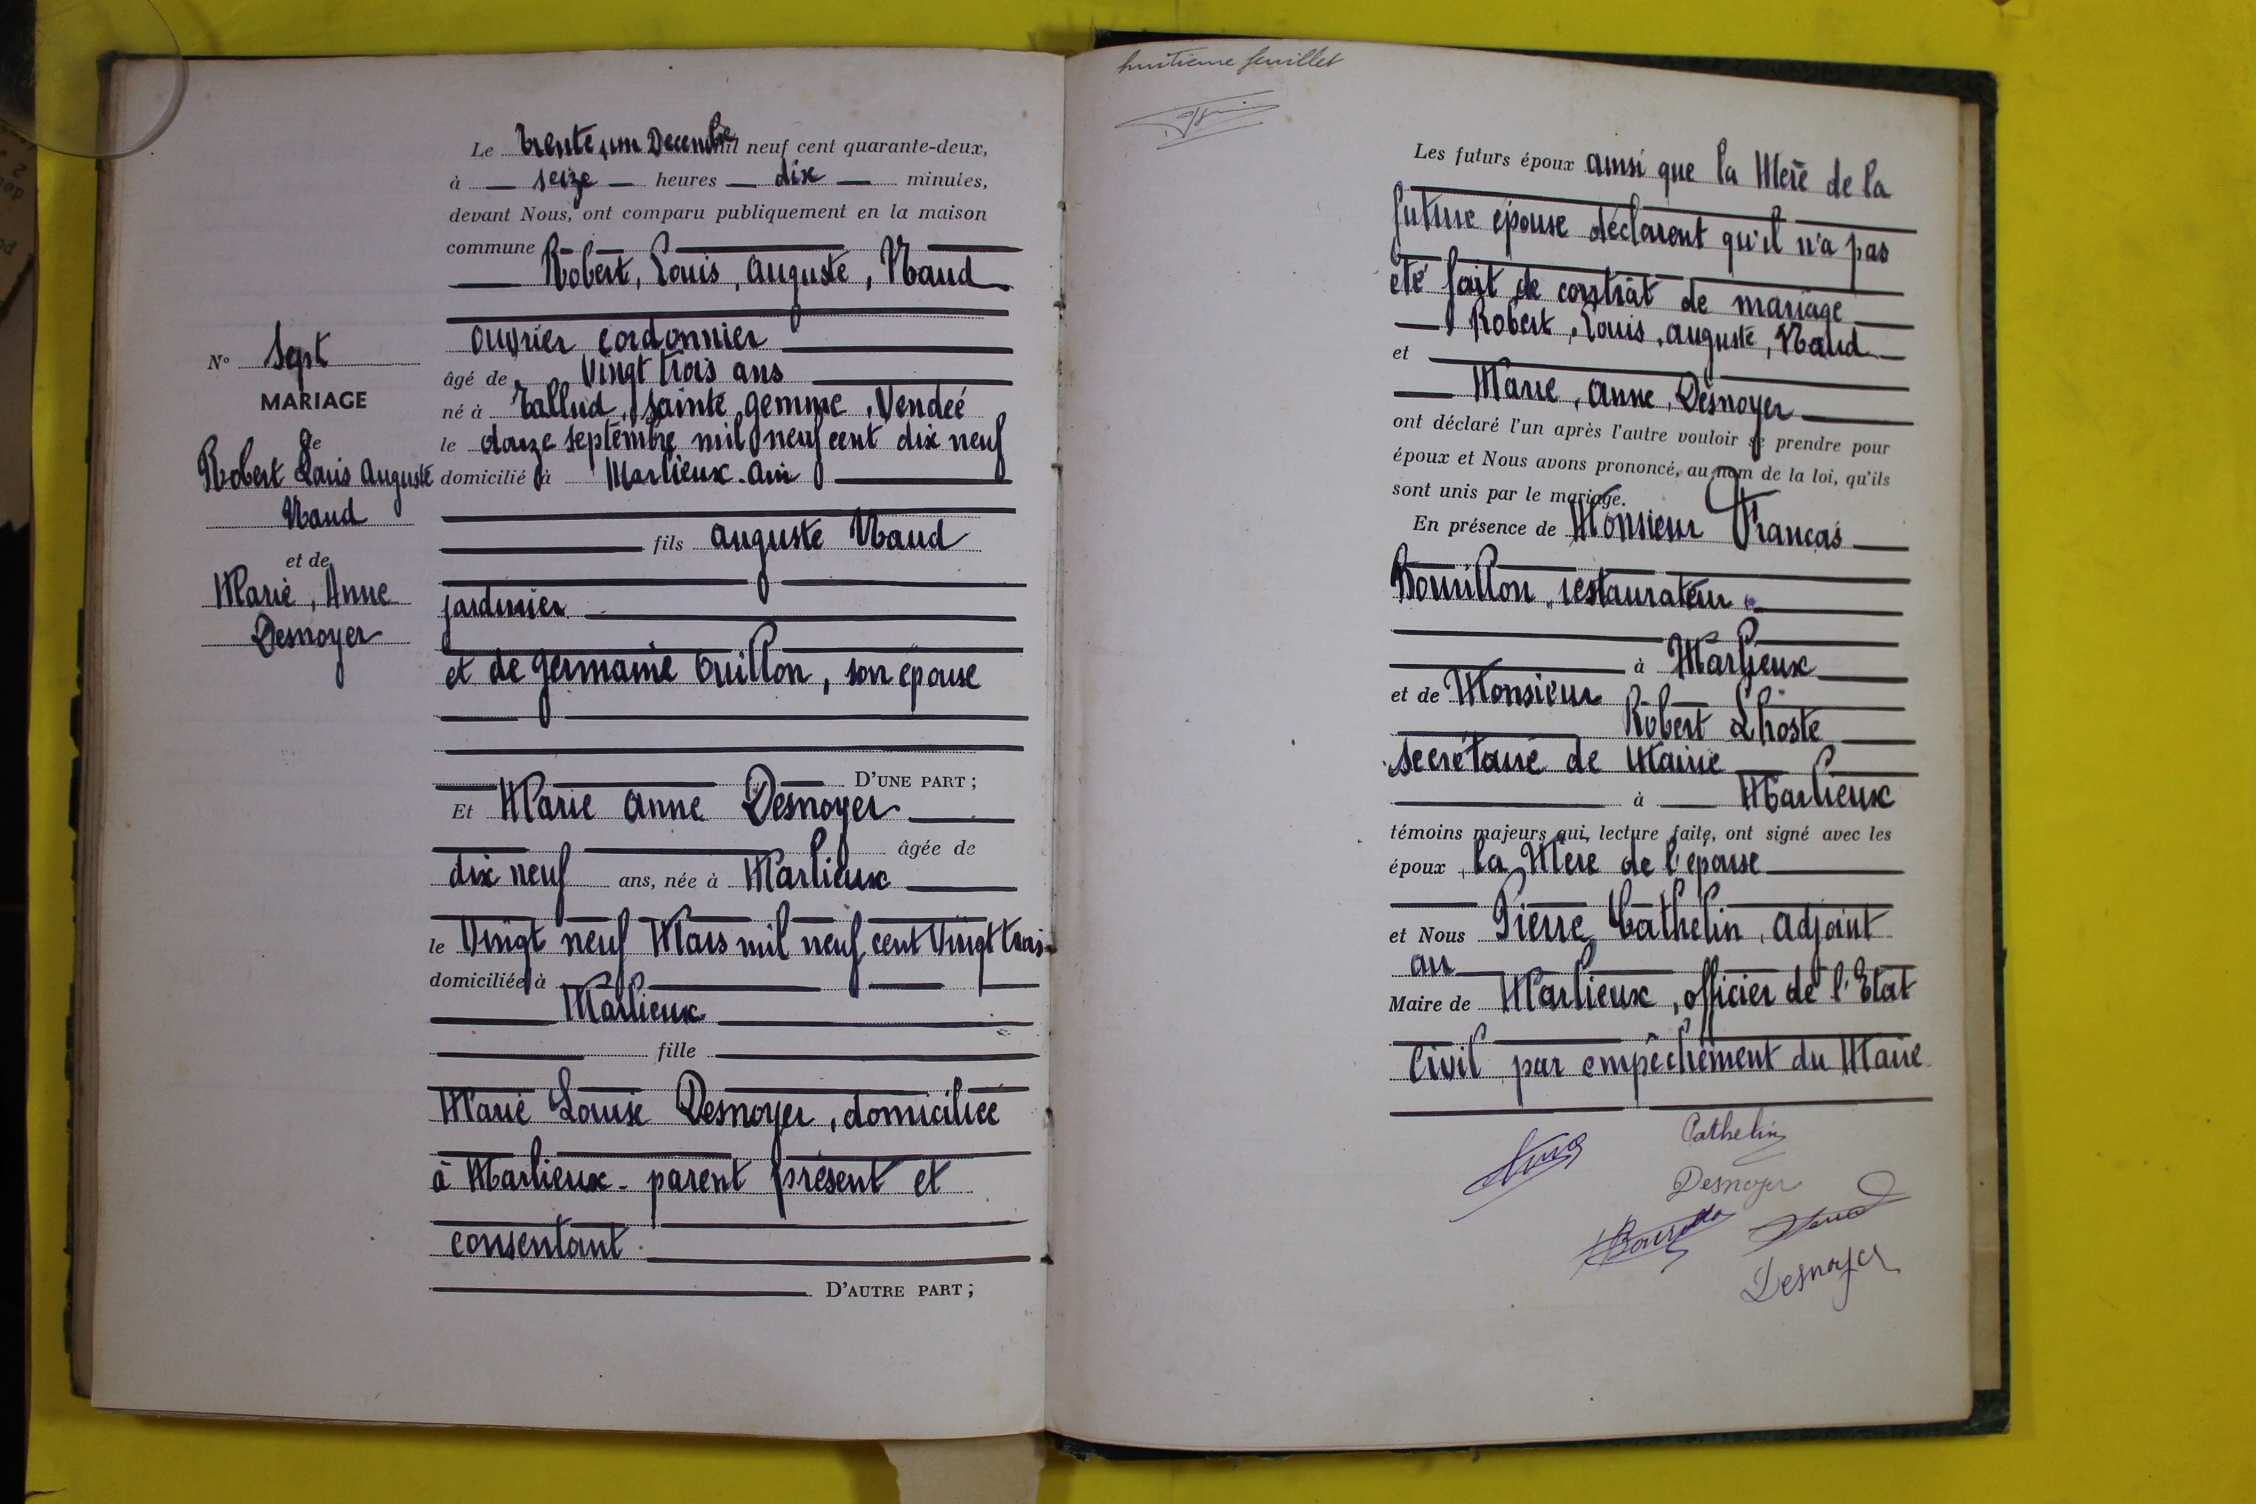 N° Sept
MARIAGE
de
Robert Louis Auguste
Naud
et de
Marie, Anne
Desnoyer
Le trente un Decembre mil neuf cent quarante-deux,
à seize heures dix minutes,
devant Nous, ont comparu publiquement en la maison
commune
Robert, Louis, Auguste, Naud
ouvrier cordonnier
âgé de Vingt trois ans
né à Tallud, Sainte gemme, Vendeé
le douze septembre mil neuf cent dix neuf
domicilié à Marlieux. Ain
fils Auguste Naud
jardinier
et de germaine Guillon, son épouse
D'UNE PART ;
Et Marie Anne Desnoyer
âgée de
dix neuf ans, née à Marlieux
le Vingt neuf Mars mil neuf cent Vingt trois
domiciliée à
Marlieux
fille
Marie Louise Desnoyer, domiciliée
à Marlieux - parent présent et
consentant.
D'AUTRE PART ;
huitieme feuillet
Les futurs époux ainsi que la Mère de la
future épouse déclarent qu'il n'a pas
été fait de contrat de mariage
Robert, Louis, Auguste, Naud
et
Marie, Anne, Desnoyer
ont déclaré l'un après l'autre vouloir se prendre pour
époux et Nous avons prononcé, au nom de la loi, qu'ils
sont unis par le mariage.
En présence de Monsieur Francas
Bourillon, restaurateur
à Marlieux
et de Monsieur
Robert Lhoste
secrétaire de Mairie
à Marlieux
témoins majeurs qui, lecture faite, ont signé avec les
époux, la Mère de l'épouse
et Nous Pierre Cathelin, adjoint
au
Maire de Marlieux, officier de l'Etat
Civil par empêchement du Maire
Cathelin
Desnoyer
Desnoyer